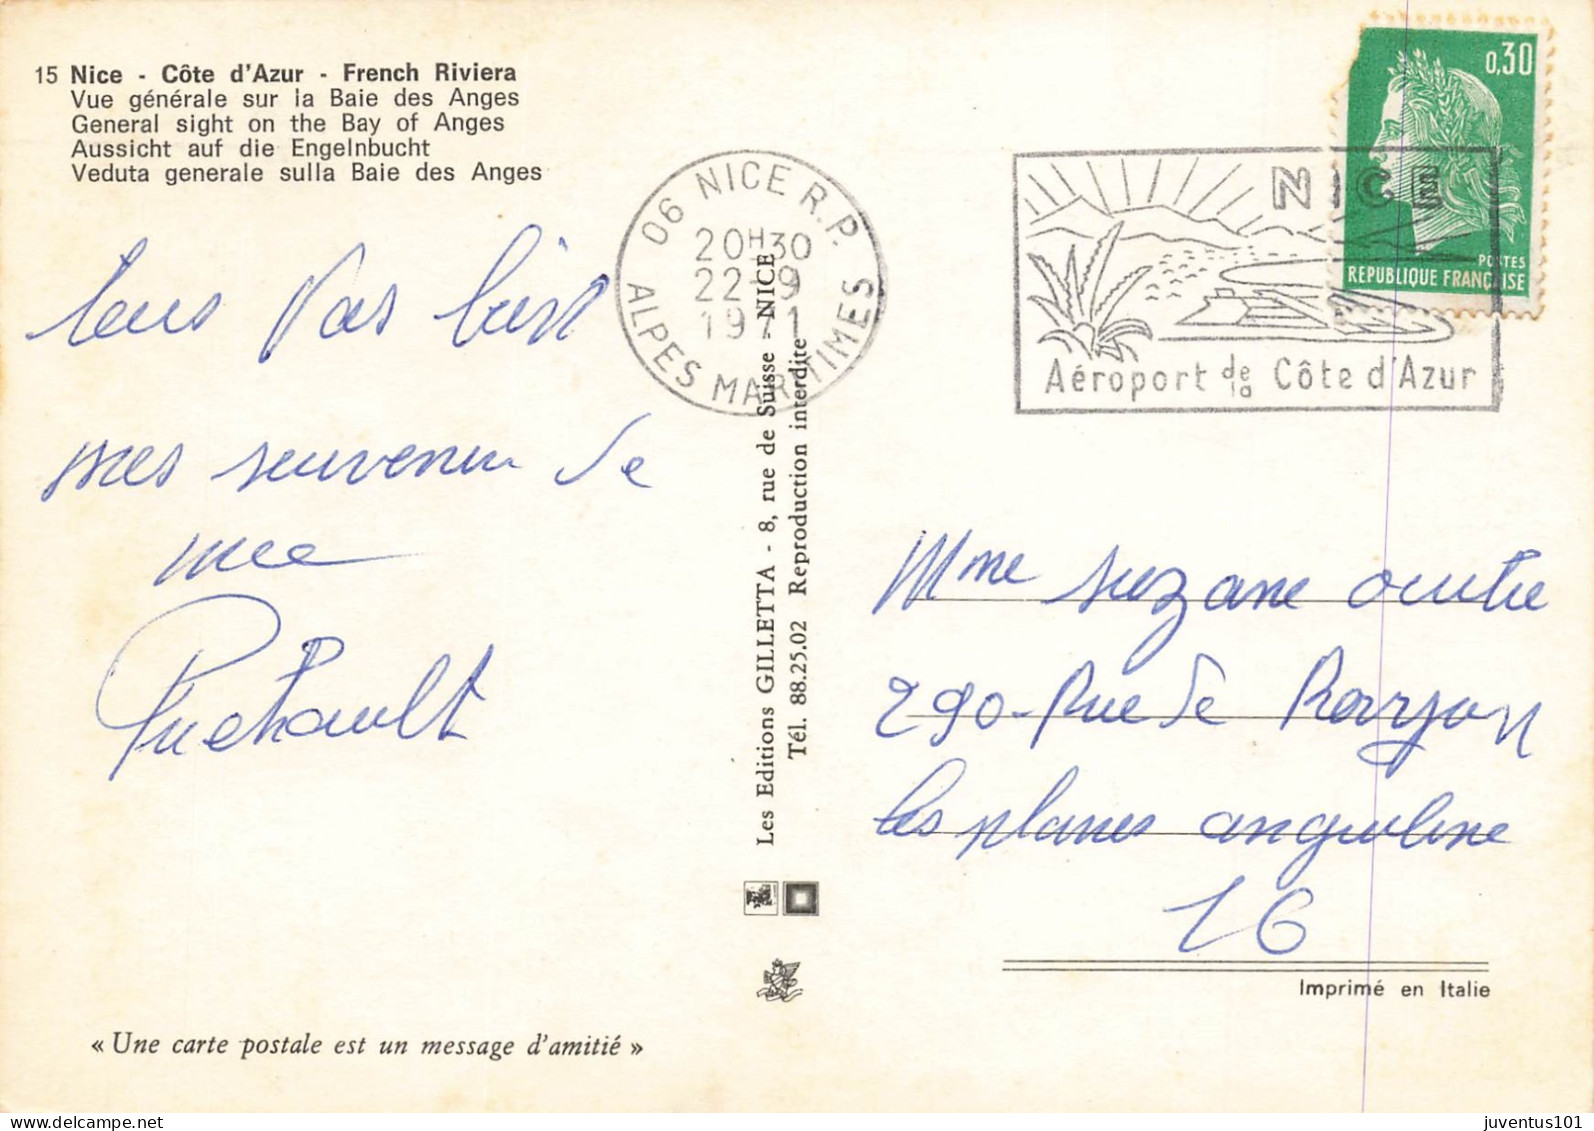 15 Nice - Côte d'Azur - French Riviera
Vue générale sur la Baie des Anges
General sight on the Bay of Anges
Aussicht auf die Engelnbucht
Veduta generale sulla Baie des Anges
06 NICE R.P.
20H30
22-9
1971
ALPES MARITIMES
NICE
Aéroport de la Côte d'Azur
0,30
POSTES
REPUBLIQUE FRANÇAISE
mes souvenir de
Les Editions GILLETTA - 8, rue de Suisse - NICE
Tél. 88.25.02 Reproduction interdite
Mme suzane
290 - Rue de
les planes anguleme
16
Imprimé en Italie
« Une carte postale est un message d'amitié »
juventus101